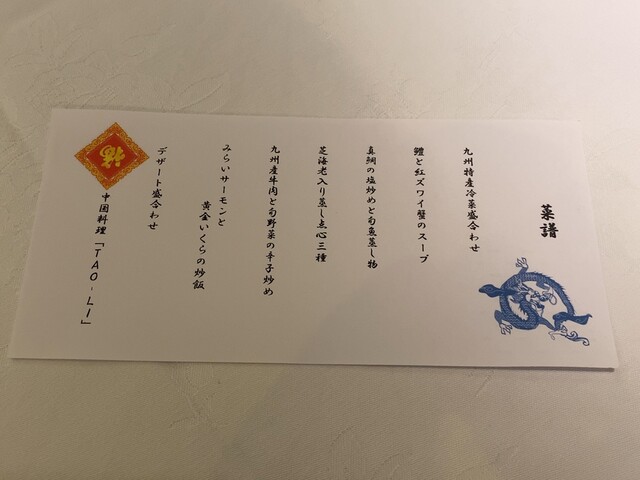 菜譜
九州特産冷菜盛合わせ
鱧と紅ズワイ蟹のスープ
真鯛の塩炒めと旬魚蒸し物
芝海老入り蒸し点心三種
九州産牛肉と旬野菜の辛子炒め
みらいサーモンと
黄金いくらの炒飯
デザート盛合わせ
中国料理「TAO-LI」
福